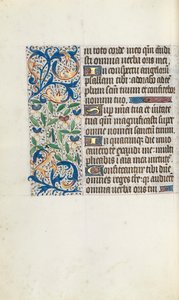 in toto corde meo qm audi
sti omnia verba oris mei
In conspectu angelorum
psallam tibi adorabo ad te
plum scm tuum et confitebor
nomini tuo
Sup mia tua et veritate
tua qm magnificasti sup
omne nomen sanctum tuum
In quacumque die invo
cavero te exaudi me multi
plicabis in aia mea virtute
Confiteantur tibi dne
omnes reges tre qr audierunt
omnia verba oris tui